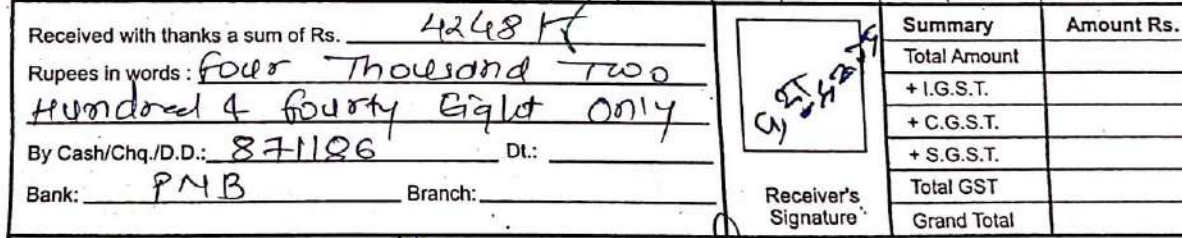 Received with thanks a sum of Rs. 4248/-
Rupees in words : Four Thousand Two
Hundred & Fourty Eight Only
By Cash/Chq./D.D.: 871186 Dt.:
Bank: PNB Branch:
Receiver's
Signature
Summary Amount Rs.
Total Amount
+ I.G.S.T.
+ C.G.S.T.
+ S.G.S.T.
Total GST
Grand Total